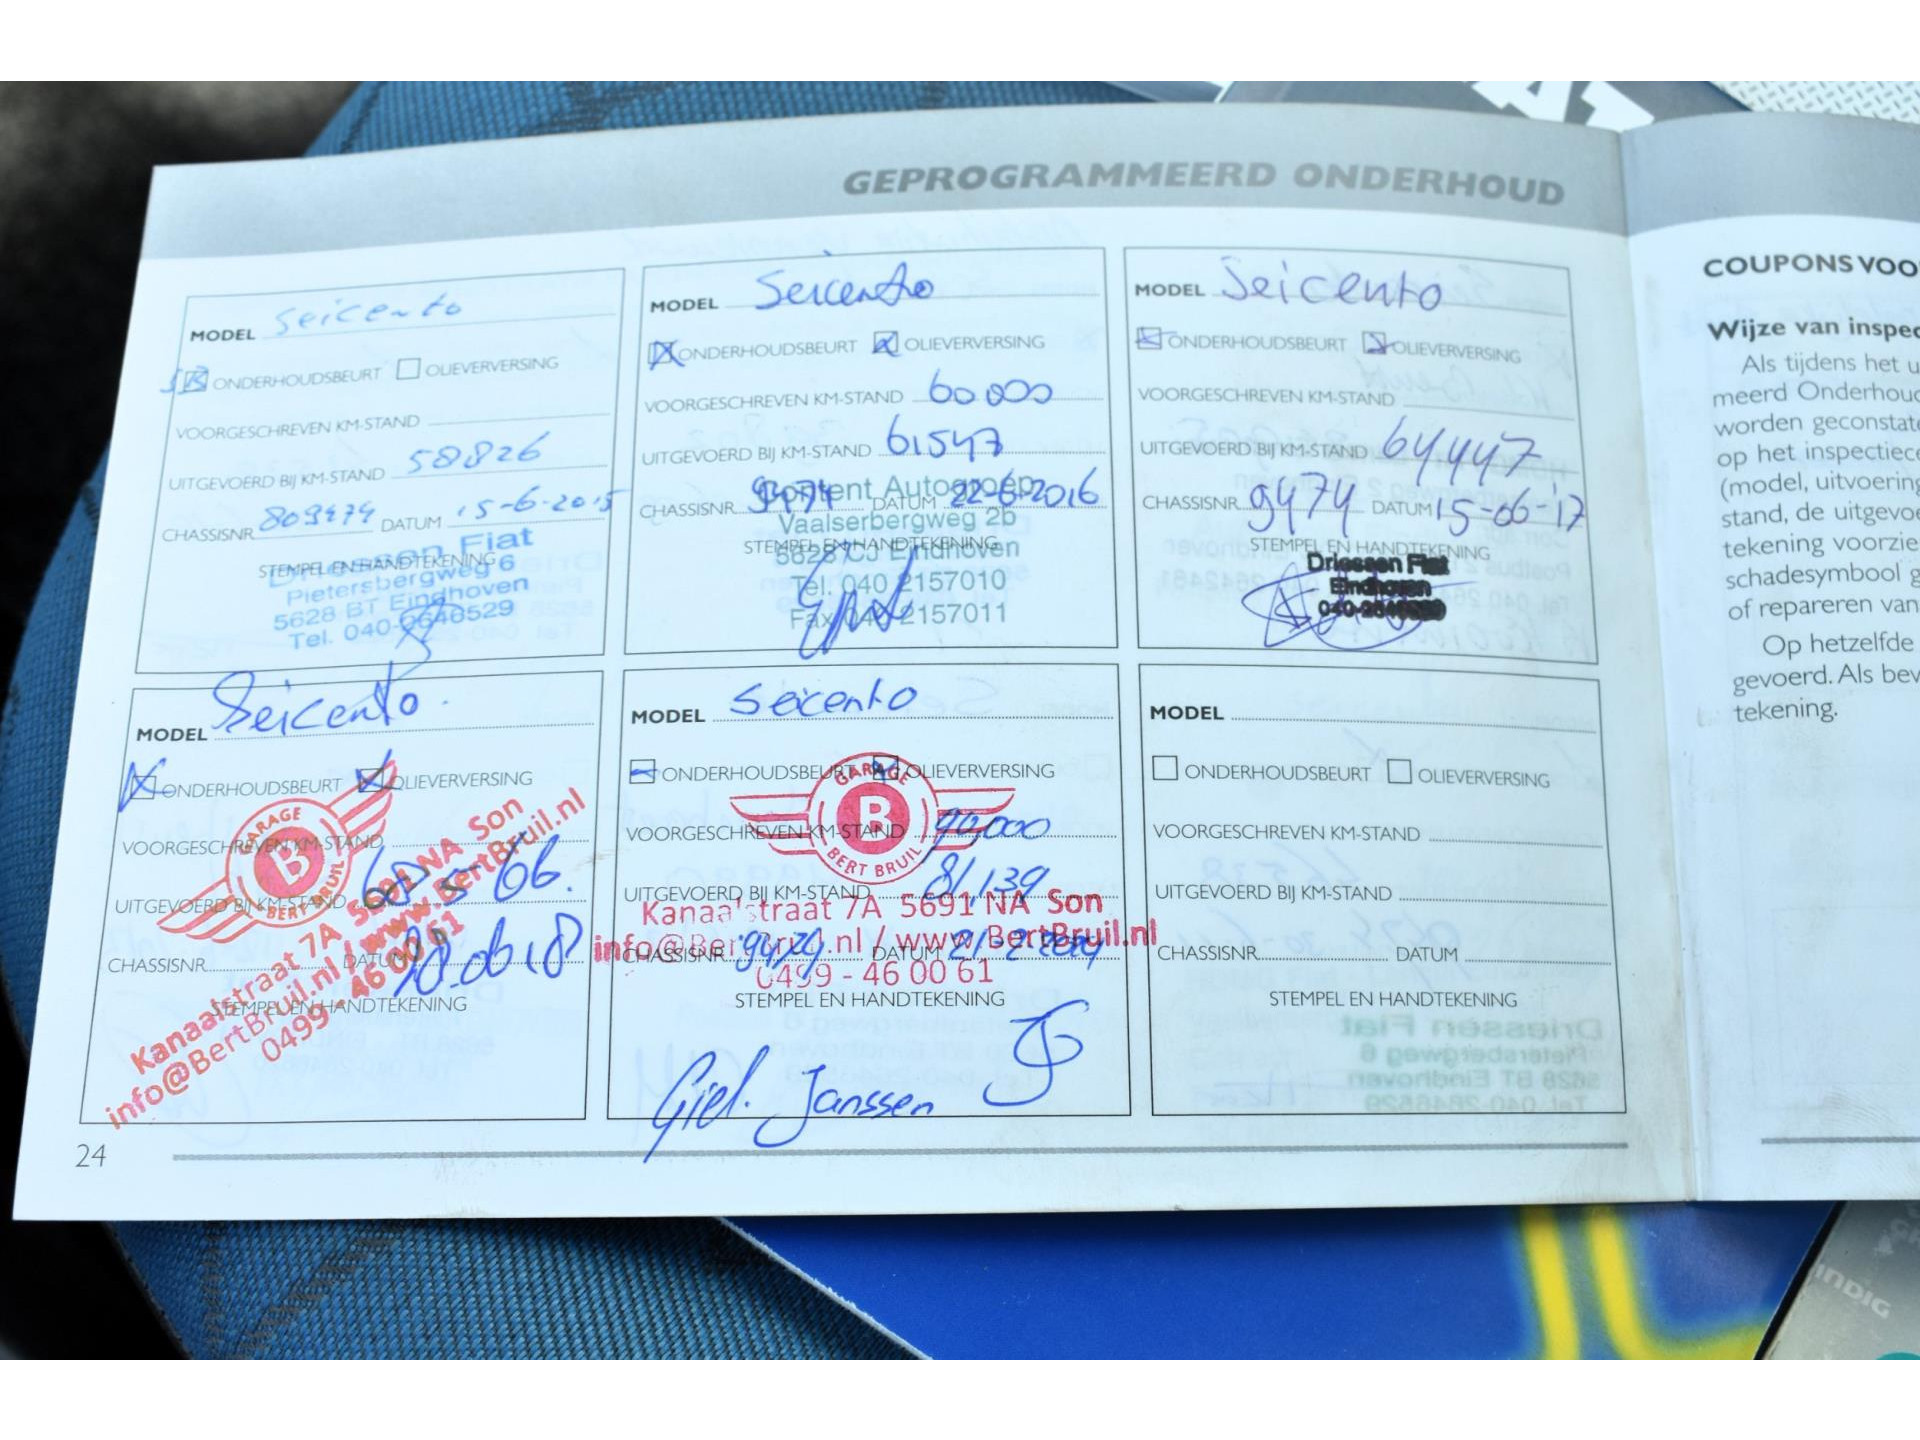 GEPROGRAMMEERD ONDERHOUD
MODEL Seicento
ONDERHOUDSBEURT OLIEVERVERSING
VOORGESCHREVEN KM-STAND
UITGEVOERD BIJ KM-STAND 58826
CHASSISNR. 809474 DATUM 15-6-2015
STEMPEL EN HANDTEKENING
Driessen Fiat
Pietersbergweg 6
5628 BT Eindhoven
Tel. 040-2646529
MODEL Seicento
ONDERHOUDSBEURT OLIEVERVERSING
VOORGESCHREVEN KM-STAND 60.000
UITGEVOERD BIJ KM-STAND 61547
CHASSISNR. 9474 DATUM 22-6-2016
Content Autogroep
Vaalserbergweg 2b
STEMPEL EN HANDTEKENING
5628 CJ Eindhoven
Tel. 040 2157010
Fax 040 2157011
MODEL Seicento
ONDERHOUDSBEURT OLIEVERVERSING
VOORGESCHREVEN KM-STAND
UITGEVOERD BIJ KM-STAND 64447
CHASSISNR. 9474 DATUM 15-06-17
STEMPEL EN HANDTEKENING
Driessen Fiat
Eindhoven
040-2646529
MODEL Seicento.
ONDERHOUDSBEURT OLIEVERVERSING
VOORGESCHREVEN KM-STAND
UITGEVOERD BIJ KM-STAND
CHASSISNR. DATUM
STEMPEL EN HANDTEKENING
GARAGE
B
BERT BRUIL
Kanaalstraat 7A 5691 NA Son
info@BertBruil.nl / www.BertBruil.nl
0499 - 46 00 61
MODEL Seicento
ONDERHOUDSBEURT OLIEVERVERSING
GARAGE
B
BERT BRUIL
VOORGESCHREVEN KM-STAND
UITGEVOERD BIJ KM-STAND 81,139
Kanaalstraat 7A 5691 NA Son
info@BertBruil.nl / www.BertBruil.nl
CHASSISNR. 9474 DATUM
0499 - 46 00 61
STEMPEL EN HANDTEKENING
Giel. Janssen
MODEL
ONDERHOUDSBEURT OLIEVERVERSING
VOORGESCHREVEN KM-STAND
UITGEVOERD BIJ KM-STAND
CHASSISNR. DATUM
STEMPEL EN HANDTEKENING
24
COUPONS VOO
Wijze van inspec
Als tijdens het u
meerd Onderhoud
worden geconstate
op het inspectiece
(model, uitvoering
stand, de uitgevoe
tekening voorzie
schadesymbool g
of repareren van
Op hetzelfde
gevoerd. Als bev
tekening.